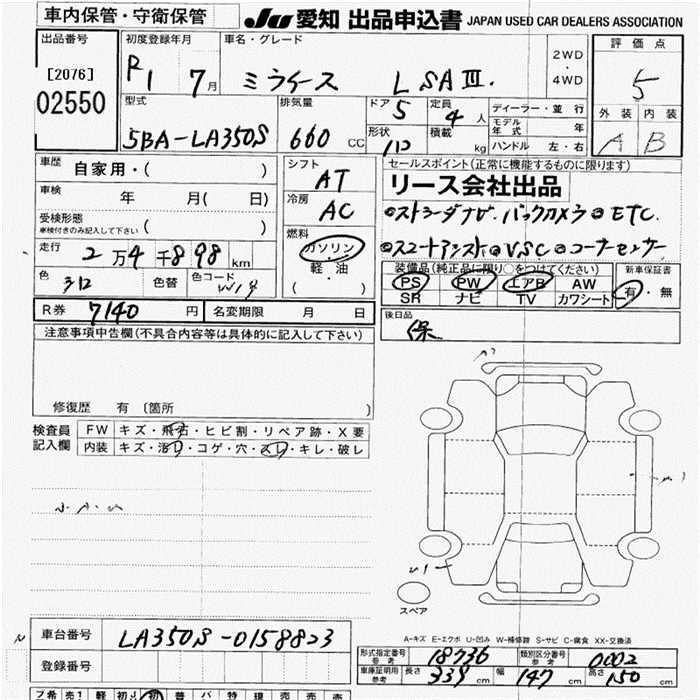 車内保管・守衛保管
JU 愛知 出品申込書 JAPAN USED CAR DEALERS ASSOCIATION
出品番号
[2076]
02550
初度登録年月
R1 7月
車名・グレード
ミライース L SAⅢ.
2WD
4WD
評価点
5
外装 内装
A B
型式
5BA-LA350S
排気量
660 CC
ドア
5
定員
4人
形状
積載
kg
ディーラー・並行
モデル年式 年
ハンドル 左・右
車歴
自家用・( )
車検
年 月( 日)
受検形態
車検付きのみ記入して下さい ( )
走行
2万4千898km
色
色替
色コード
シフト
AT
冷房
AC
燃料
ガソリン
軽・油
( )
セールスポイント(正常に機能するものに限ります)
リース会社出品
◎ストラーダナビ. バックカメラ◎ETC.
◎スマートアシスト◎VSC◎コーナーセンサー
装備品(純正品に限り○をつけてください)
PS PW エアB AW
SR ナビ TV カワシート
新車保証書
有・無
R券 7140円
名変期限 月 日
後日品
保
注意事項申告欄(不具合内容等は具体的に記入して下さい)
修復歴 有 〔箇所 〕
検査員記入欄
FW キズ・飛石・ヒビ割・リペア跡・X要
内装 キズ・汚れ・コゲ・穴・スレ・キレ・破レ
スペア
A-キズ E-エクボ U-凹み W-補修跡 S-サビ C-腐食 XX-交換済
車台番号 LA350S-0158823
登録番号
形式指定番号 参考 18736
類別区分番号 参考 0002
車庫証明用 参考 長さ 339cm 幅 147cm 高さ 150cm